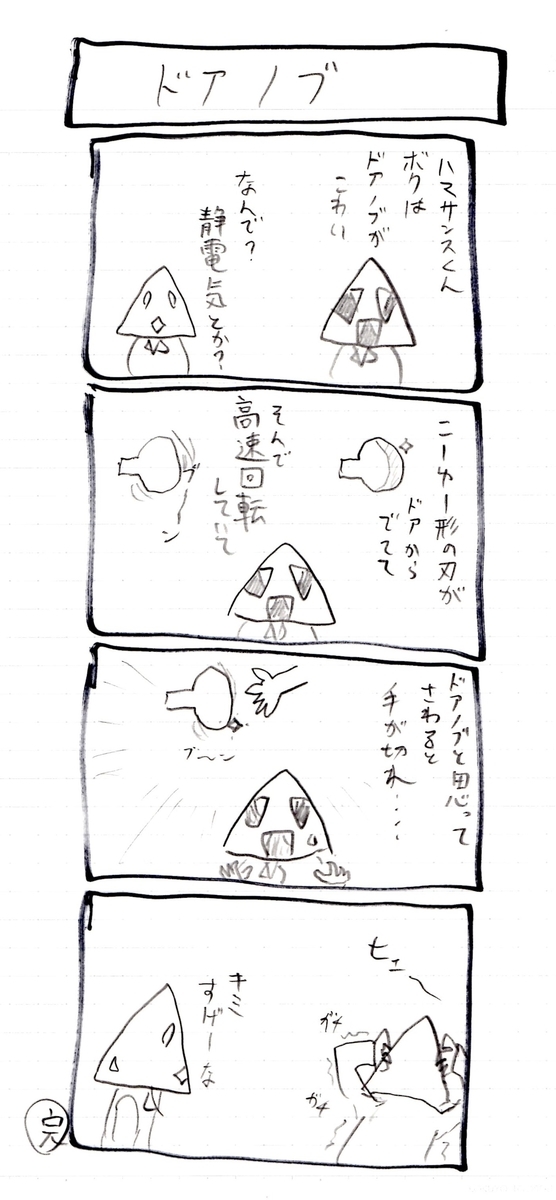 ドアノブ
ハマサンスくん
ボクは
ドアノブが
こわい
なんで?
静電気とか?
ニーカー形の刃が
ドアから
でてて
そんで
高速回転
していて
ブーン
ドアノブと思って
さわると
手が切れ・・・
ブ〜ン
ヒェー
ガチ
ガチ
キミ
すげーな
完